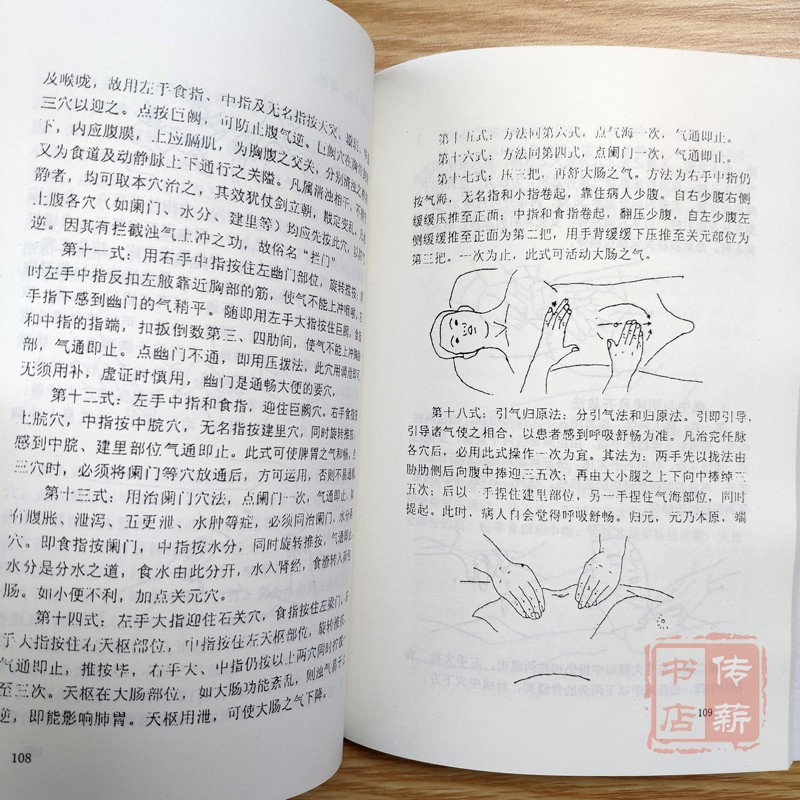 及喉咙，故用左手食指、中指及无名指按天突、璇玑、华
三穴以迎之。点按巨阙，可防止腹气逆。巨阙穴在胸
下，内应腹膜，上应膈肌，为胸腹之交关，分别清浊之
又为食道及动静脉上下通行之关隘。凡属清浊相干，不
静者，均可取本穴治之，其效犹仗剑立朝，敉定变乱，
上腹各穴（如阑门、水分、建里等）均应先按此穴，以防
逆。因其有拦截浊气上冲之功，故俗名“拦门”
第十一式：用右手中指按住左幽门部位，旋转推按；
时左手中指反扣左腋靠近胸部的筋，使气不能上冲咽喉，
手指下感到幽门的气稍平。随即用左手大指按住巨阙，食
和中指的指端，扣扳倒数第三、四肋间，使气不能上冲胸
部，气通即止。点幽门不通，即用压拨法，此穴用调泄即可
无须用补，虚证时慎用，幽门是通畅大便的要穴，
第十二式：左手中指和食指，迎住巨阙穴，右手食指按
上脘穴，中指按中脘穴，无名指按建里穴，同时旋转推按，
感到中脘、建里部位气通即止。此式可使脾胃之气和畅，
三穴时，必须将阑门等穴放通后，方可运用，否则不易通
第十三式：用治阑门穴法，点阑门一次，气通即止。如
有腹胀、泄泻、五更泄、水肿等症，必须同治阑门、水分两
穴。即食指按阑门，中指按水分，同时旋转推按，气通即止
水分是分水之道，食水由此分开，水入肾经，食渣转入
肠。如小便不利，加点关元穴。
第十四式：左手大指迎住石关穴，食指按住左梁门，右
手大指按住右天枢部位，中指按住左天枢部位，旋转推
气通即止，推按毕，右手大、中指仍按以上两穴同时
至三次。天枢在大肠部位，如大肠功能紊乱，则浊气易于上
逆，即能影响肺胃。天枢用泄，可使大肠之气下降。
108
第十五式：方法同第六式，点气海一次，气通即止。
第十六式：方法同第四式，点阑门一次，气通即止。
第十七式：压三把，再舒大肠之气。方法为右手中指仍
按气海，无名指和小指卷起，靠住病人少腹。自右少腹右侧
缓缓压推至正面；中指和食指卷起，翻压少腹，自左少腹左
侧缓缓压推至正面为第二把，用手背缓缓下压推至关元部位为
第三把。一次为止，此式可活动大肠之气。
第十八式：引气归原法：分引气法和归原法。引即引导，
引导诸气使之相合，以患者感到呼吸舒畅为准。凡治完任脉
各穴后，必用此式操作一次为宜。其法为：两手先以拢法由
胁肋侧后向腹中捧迎三五次；再由大小腹之上下向中捧绰三
五次；后以一手捏住建里部位，另一手捏住气海部位，同时
提起。此时，病人自会觉得呼吸舒畅。归元，元乃本原，端
109
传薪
书店